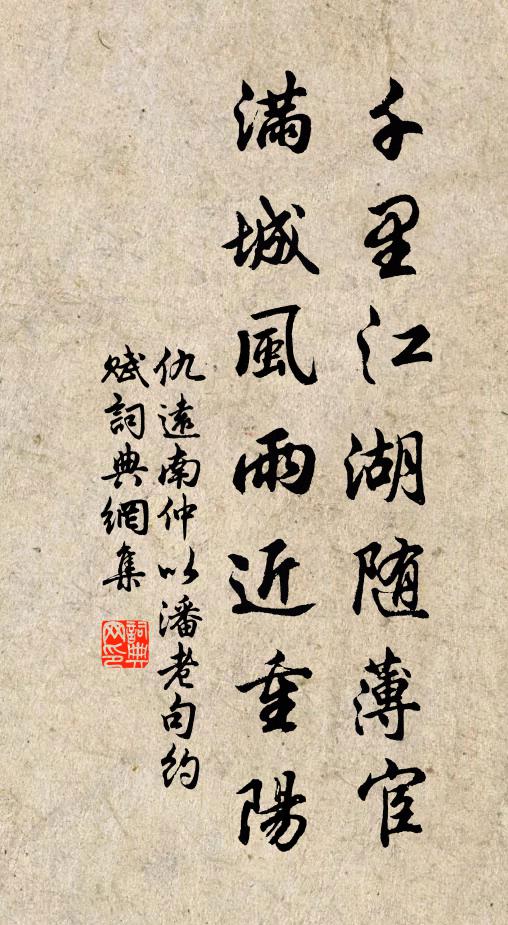 千里江湖随薄宦
滿城風雨近重陽
仇遠南仲以潘老句約
賦詞典網集
詞典網印